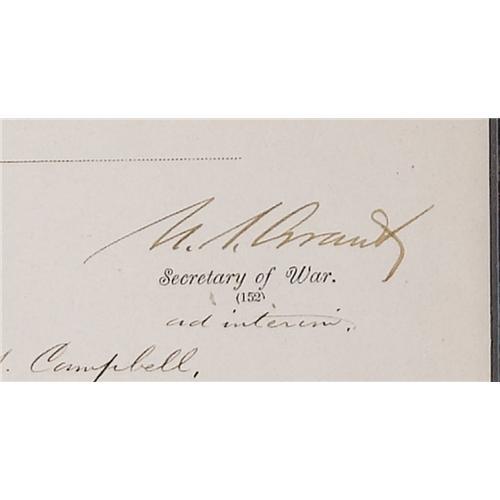 U. S. Grant
Secretary of War.
(152)
ad interim.
Campbell,